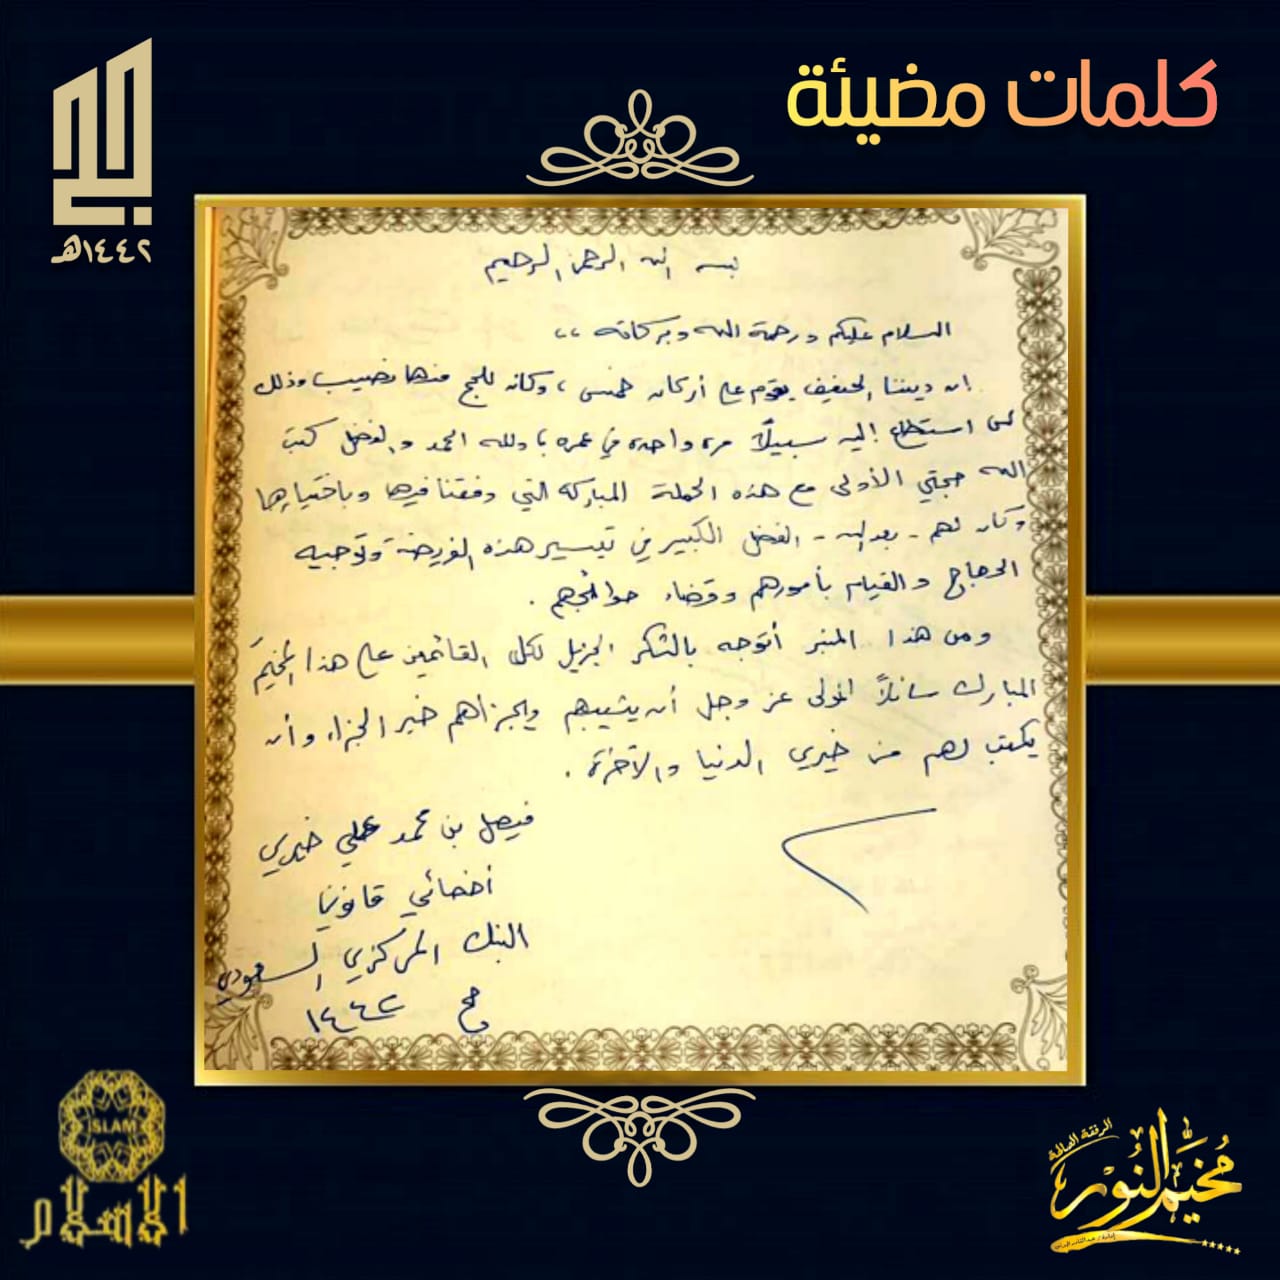 كلمات مضيئة
الحج
١٤٤٢هـ
بسم الله الرحمن الرحيم
السلام عليكم ورحمة الله وبركاته ،،
إن ديننا الحنيف يقوم على أركان خمس ، وكان للحج منها نصيب وذلك
لمن استطاع إليه سبيلاً مرة واحدة في عمره ، ولله الحمد والفضل كتب
الله حجتي الأولى مع هذه الحملة المباركة التي وفقنا فيها وباختيارها
وكان لهم - بعد الله - الفضل الكبير في تيسير هذه الفريضة وتوجيه
الحجاج والقيام بأمورهم وقضاء حوائجهم .
ومن هذا المنبر أتوجه بالشكر الجزيل لكل القائمين على هذا المخيم
المبارك سائلاً المولى عز وجل أن يثيبهم ويجزاهم خير الجزاء وأن
يكتب لهم من خيري الدنيا والآخرة .
فيصل بن محمد علي خيري
أخصائي قانوني
البنك المركزي السعودي
حج ١٤٤٢
ISLAM
الإسلام
الرفقة الصالحة
مخيم النور